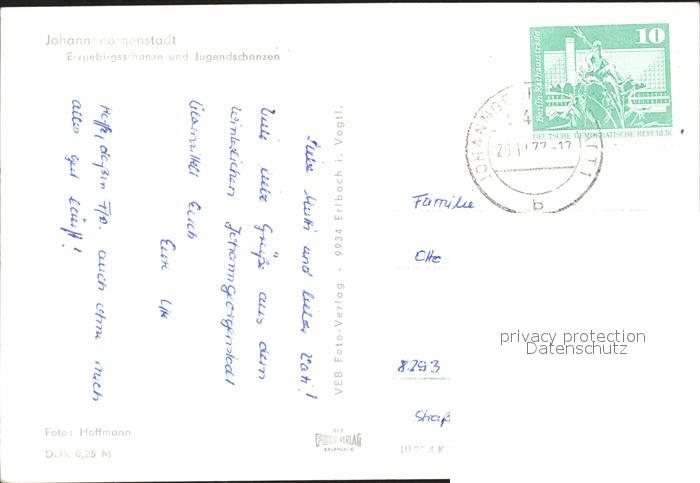 Johanngeorgenstadt
Erzgebirgsschanze und Jugendschanzen
Liebe Mutti und lieber Vati!
Viele liebe Grüße aus dem
winterlichen Johanngeorgenstadt
übermittelt Euch
Eure
Hoffe, daß in auch ohne mich
alles gut läuft!
VEB Foto-Verlag · 9934 Erlbach i. Vogtl.
Foto: Hoffmann
DDR 0,25 M
VEB
FOTO-VERLAG
ERLBACH
10
Berlin, Rathausstraße
DEUTSCHE DEMOKRATISCHE REPUBLIK
b
Familie
Otto
8293
Straß
privacy protection
Datenschutz